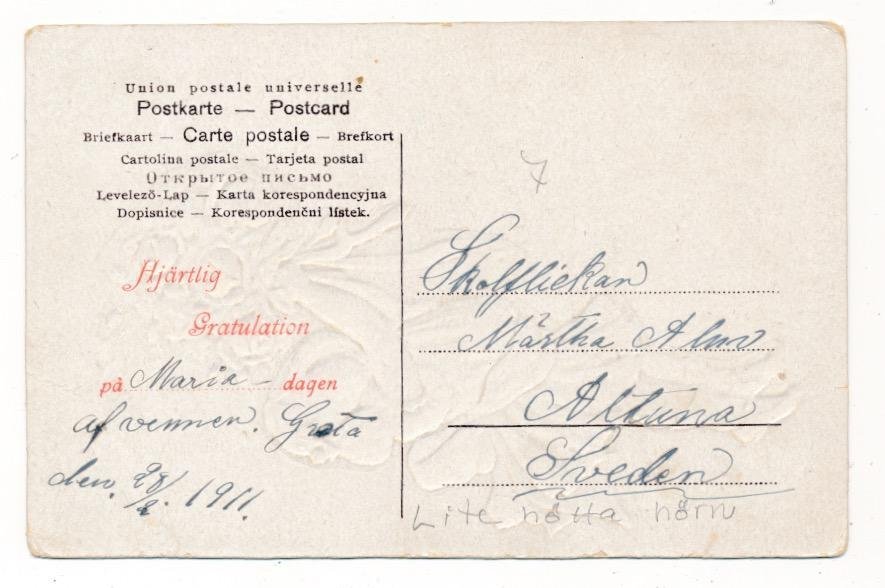 Union postale universelle
Postkarte — Postcard
Briefkaart — Carte postale — Brefkort
Cartolina postale — Tarjeta postal
Открытое письмо
Levelező-Lap — Karta korespondencyjna
Dopisnice — Korespondenčni lístek.
Hjärtlig
Gratulation
på Maria - dagen
af vennen. Greta
den 28/2. 1911.
7
Skolflickan
Märtha Alm
Altuna
Sveden
Lite nötta hörn